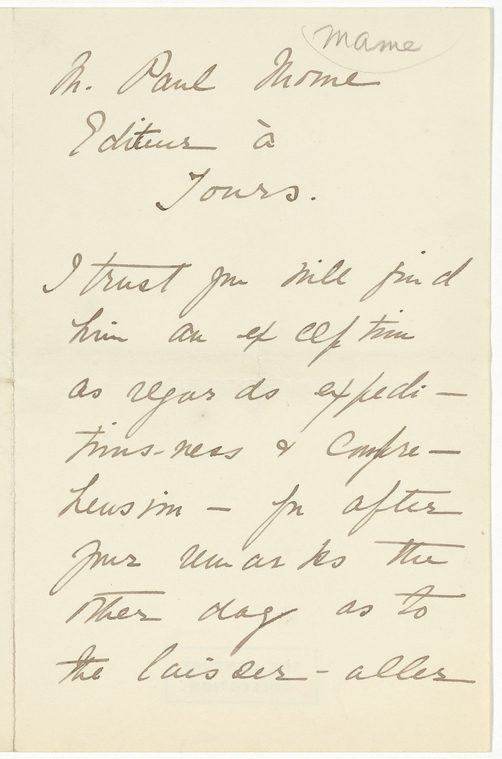 Mame
M. Paul Mome
Editeur à
Tours.
I trust you will find
him an exception
as regards expedi-
tious-ness & compre-
hension - for after
your remarks the
other day as to
the laisser-aller